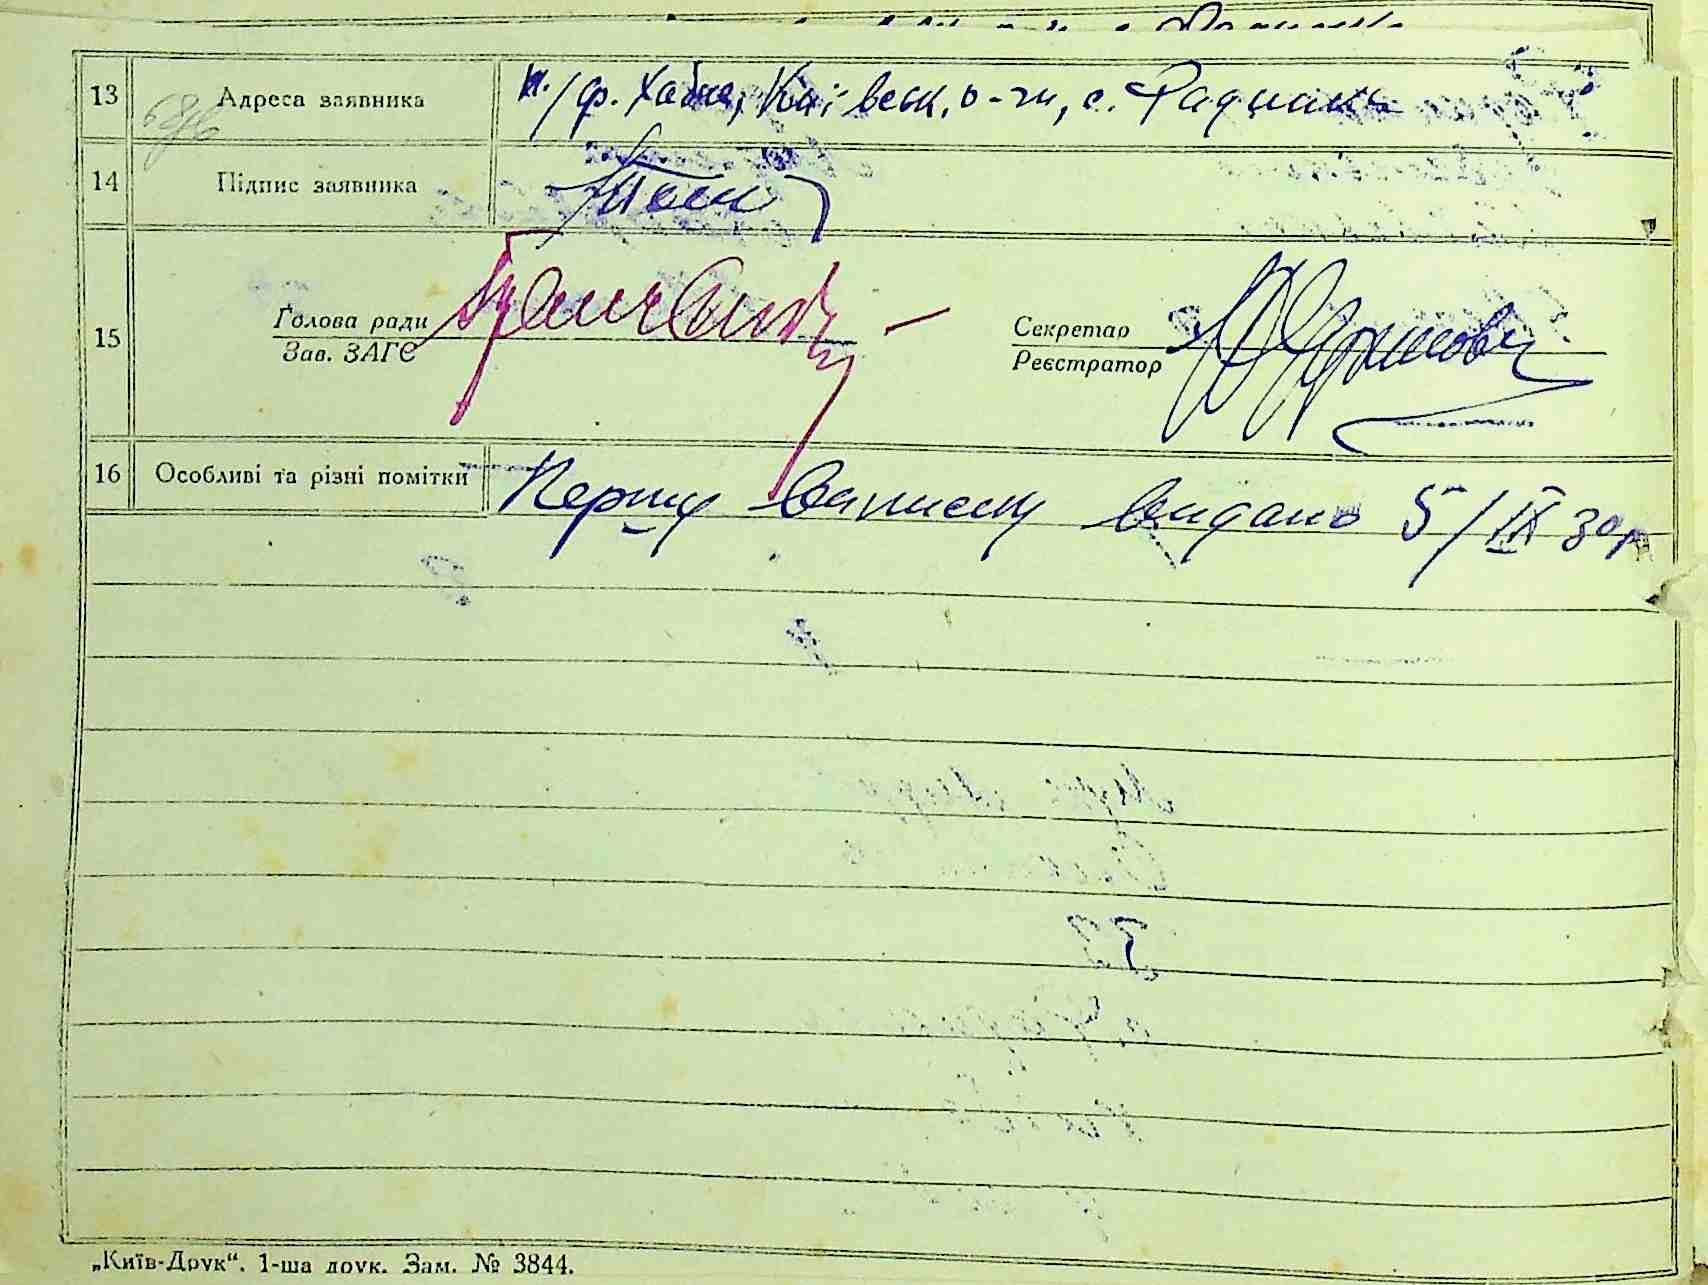 13 Адреса заявника п./ф. Хабне, Київськ. о-ти, с. Радинка
14 Підпис заявника
15 Голова ради
Зав. ЗАГС
Секретар
Реєстратор
16 Особливі та різні помітки Першу виписку видано 5/IX 30 р
„Київ-Друк“. 1-ша друк. Зам. № 3844.